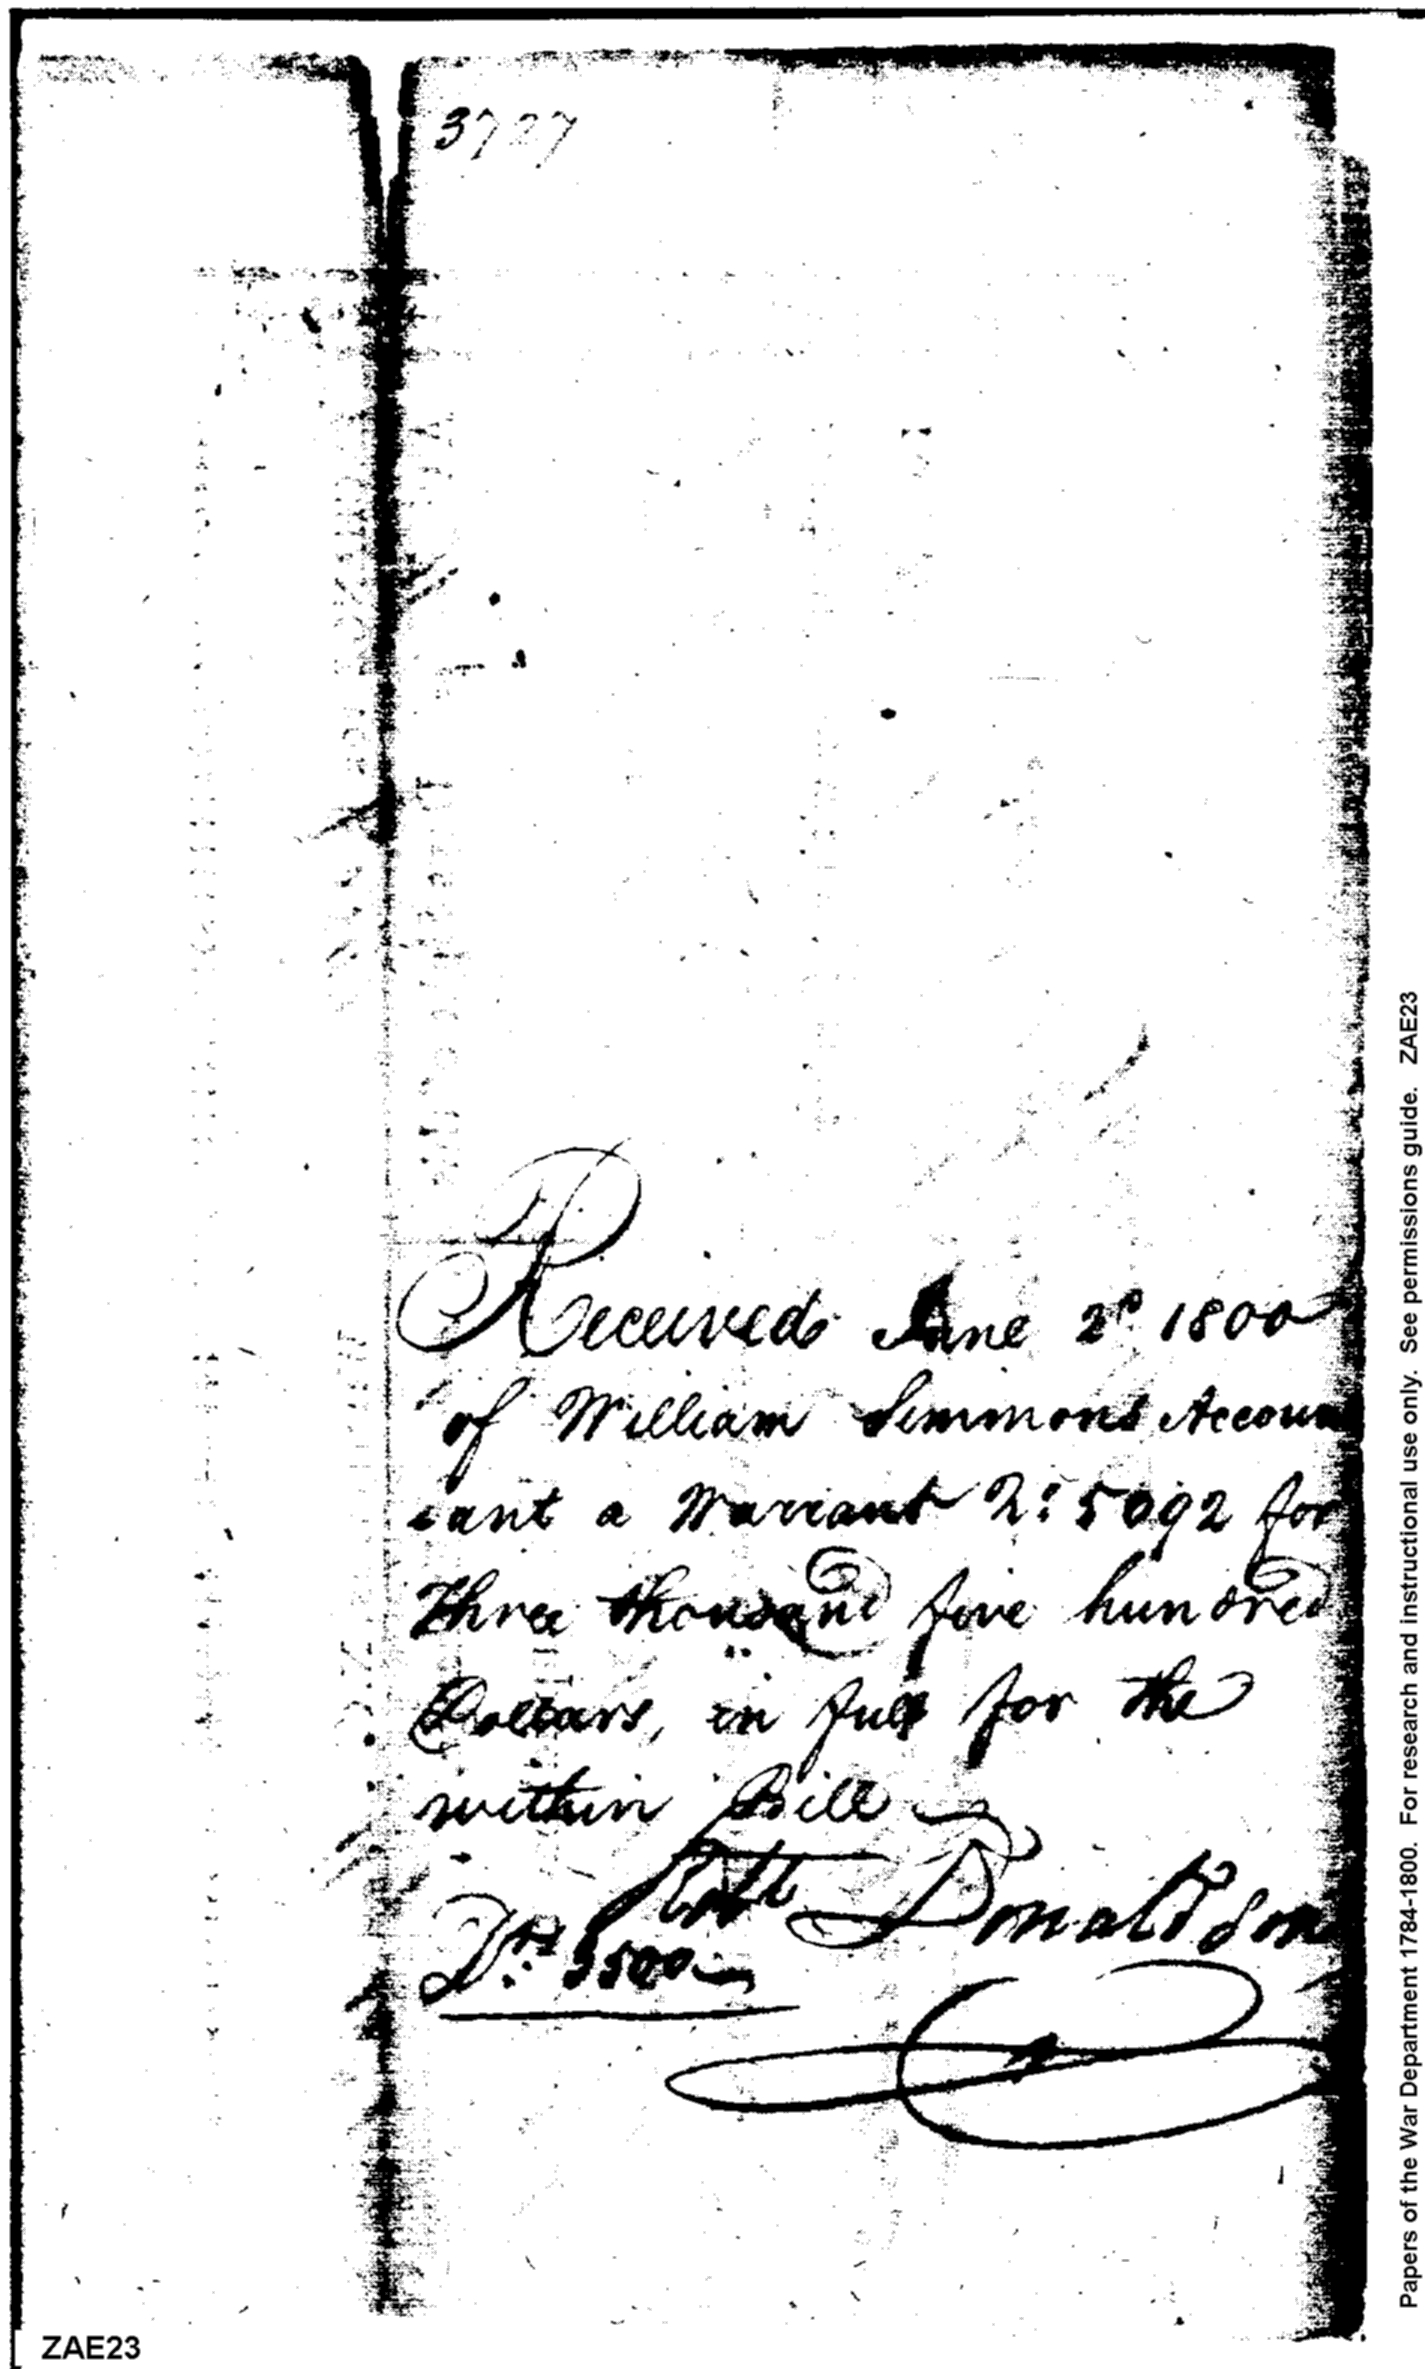 3727
Received June 2d 1800
of William Simmons Accoun
tant a Warrant No 5092 for
Three thousand five hundred
Dollars, in full for the
within Bill
Robt Donaldson
Drs 3500
ZAE23
Papers of the War Department 1784-1800. For research and instructional use only. See permissions guide. ZAE23